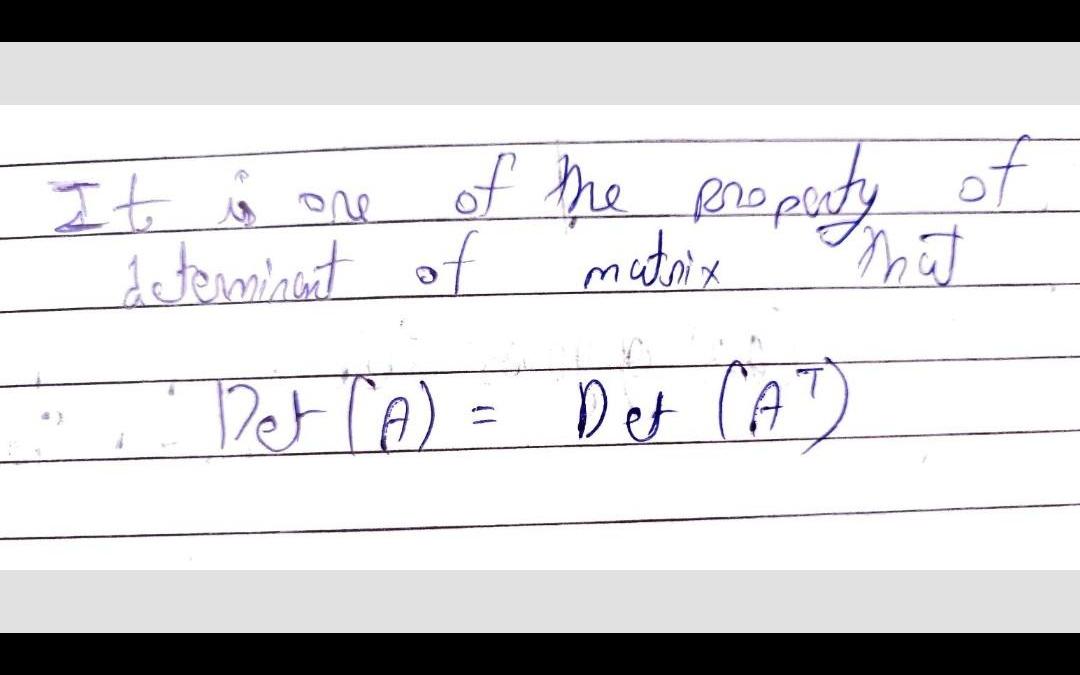 It is one of the property of
determinant of matrix that
Det (A) = Det (A^T)